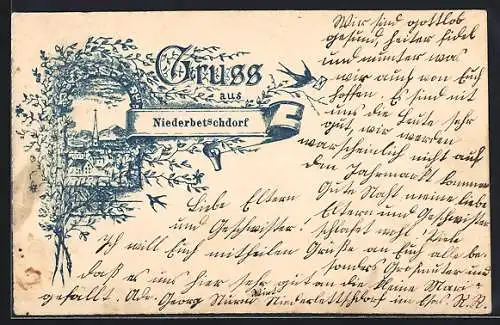 Gruss
aus
Niederbetschdorf
Wir sind gottlob
gesund, heiter fidel
und munter was
wir auch von Euch
hoffen. Es sind mit
uns die Leute sehr
gut, wir werden
warscheinlich nicht auf
den Jahrmarkt kommen
Gute Nacht meine liebe
Eltern und Geschwister
schlafet wohl! Viele
Liebe Eltern
und Geschwister!
Ich will Euch mittheilen Grüße an Euch alle be-
daß es uns hier sehr gut an die kleine Mari
sonders Großmutter und
gefällt. Adr. Georg Niederbetschdorf im Els.